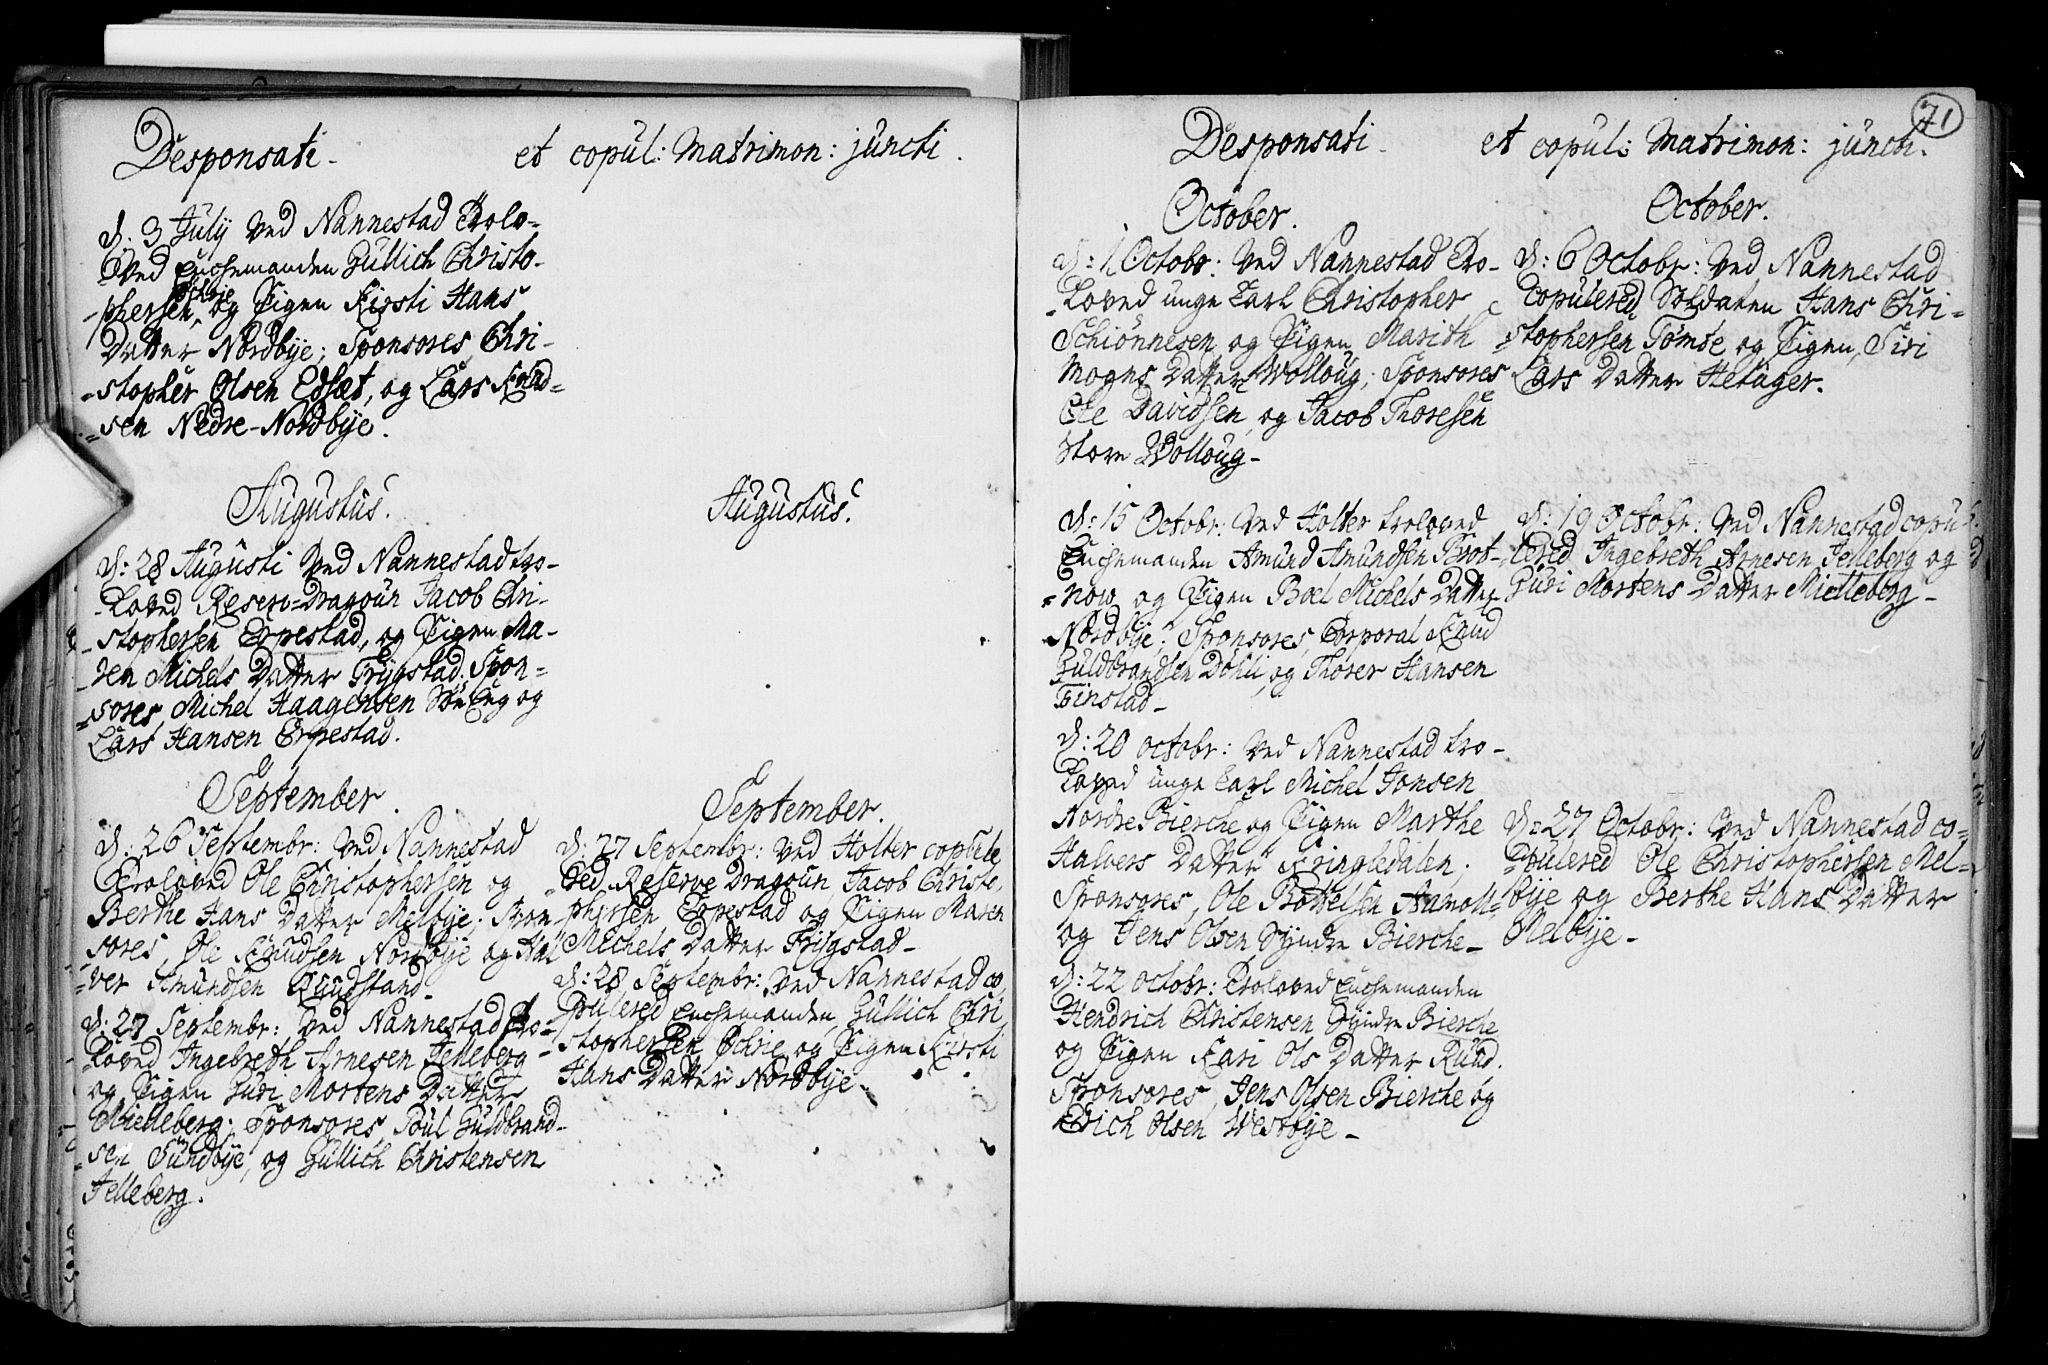 Desponsati
et copul: Matrimon: juncti.
d. 3 July ved Nannestad Trolo-
-ved Enchemanden Gullich Christo-
-phersen, Ochrie og Pigen Kirsti Hans
Datter Nordbye; Sponsores, Chri-
-stopher Olsen Edset, og Lars Knud-
-sen Nedre-Nordbye.
Augustus.
d: 28 Augusti ved Nannestad tro-
-loved Reserv-Dragoun Jacob Chri-
-stophersen Erpestad, og Pigen Ma-
-ren Michels Datter Trygstad; Spon-
-sores, Michel Haagensen og
Lars Hansen Erpestad.
September.
d: 26 Septembr: ved Nannestad
Troloved Ole Christophersen og
Berthe Hans Datter Melbye; Spon
-sores, Ole Knudsen Nordbye og Hal
-ver Amundsen Ruudstand.
d: 27 Septembr: ved Nannestad Tro-
-loved Ingebreth Arnesen Jelleberg
og Pigen Guri Mortens Datter
Mielleberg; Sponsores Poul Guldbrand-
-sen Sundbye, og Gullich Christensen
Jelleberg.
Augustus.
September.
d: 27 Septembr: ved Holter copule
-red Reserve Dragoun Jacob Christo-
phersen Erpestad og Pigen Maren
Michels Datter Trygstad-
d: 28 Septembr: ved Nannestad co
pulered Enchemanden Gullich Chri
stophersen Ochrie og Pigen Kirsti
Hans Datter Nordbye-
71
Desponsati
et copul: Matrimon: juncti.
October.
d: 1 Octobr: ved Nannestad Tro-
-loved unge Karl Christopher
Schiönnesen og Pigen Marith
Mogns Datter Wolloug; Sponsores
Ole Davidsen, og Jacob Thoresen
Store Wolloug-
d: 15 Octobr: ved Holter troloved
Enchemanden Amund Amundsen Brot-
-now og Pigen Boel Michels Datter
Nordbye; Sponsores, Corporal Knud
Guldbrandsen Dohli, og Thorer Hansen
Finstad-
d: 20 octobr: ved Nannestad tro-
loved unge Karl Michel Jonsen
Nordre Bierche og Pigen Marthe
Halvers Datter Kringledalen;
Sponsores, Ole Bottelsen Aamoth
og Jens Olsen Syndre Bierche-
d: 22 octobr: Troloved Enchemanden
Hendrich Christensen Syndre Bierche
og Pigen Kari Ols Datter Ruud.
Sponsores, Jens Olsen Bierche og
Erich Olsen Westbye-
October.
d: 6 Octobr: ved Nannestad
Copulered Soldaten Hans Chri-
-stophersen Tømte, og Pigen, Siri
Lars Datter Hetager.
d: 19 Octobr: ved Nannestad copu
lered Ingebreth Arnesen Jelleberg og
Guri Mortens Datter Mielleberg-
d: 27 Octobr: ved Nannestad co-
-pulered Ole Christophersen Mel-
bye og Berthe Hans Datter
Melbye-